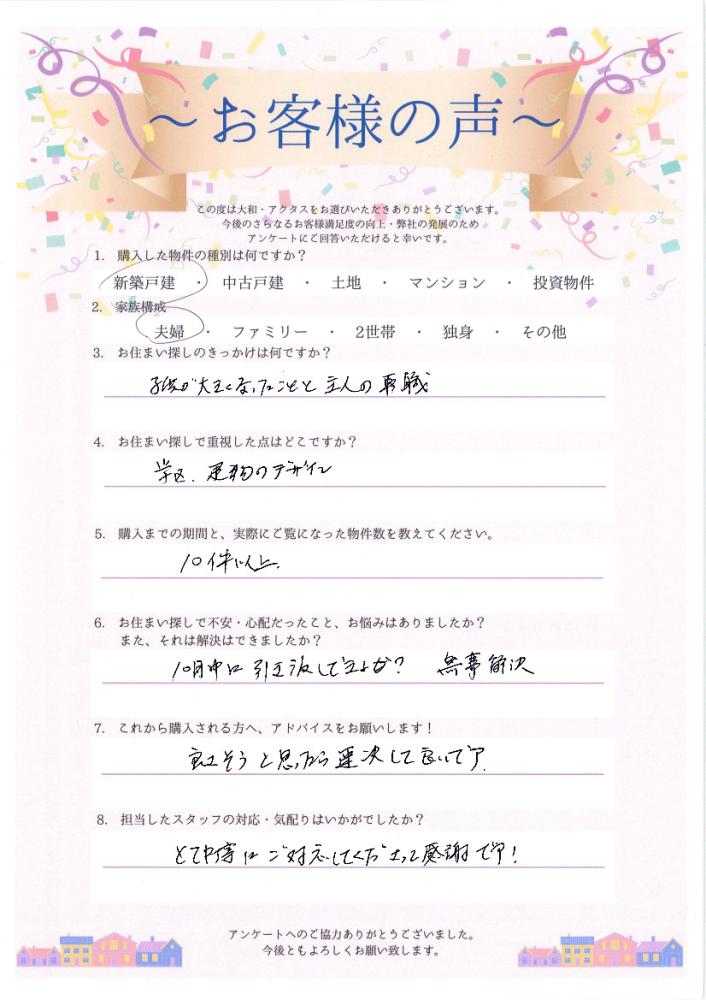 ～お客様の声～
この度は大和・アクタスをお選びいただきありがとうございます。
今後のさらなるお客様満足度の向上・弊社の発展のため
アンケートにご回答いただけると幸いです。
1. 購入した物件の種別は何ですか？
新築戸建 ・ 中古戸建 ・ 土地 ・ マンション ・ 投資物件
2. 家族構成
夫婦 ・ ファミリー ・ 2世帯 ・ 独身 ・ その他
3. お住まい探しのきっかけは何ですか？
子供が大きくなったことと主人の転職
4. お住まい探しで重視した点はどこですか？
学区、建物のデザイン
5. 購入までの期間と、実際にご覧になった物件数を教えてください。
10件以上
6. お住まい探しで不安・心配だったこと、お悩みはありましたか？
また、それは解決はできましたか？
10月中に引き渡しできるか？ 無事解決
7. これから購入される方へ、アドバイスをお願いします！
良さそうと思ったら即決して良いです。
8. 担当したスタッフの対応・気配りはいかがでしたか？
とても丁寧にご対応してくださって感謝です！
アンケートへのご協力ありがとうございました。
今後ともよろしくお願い致します。